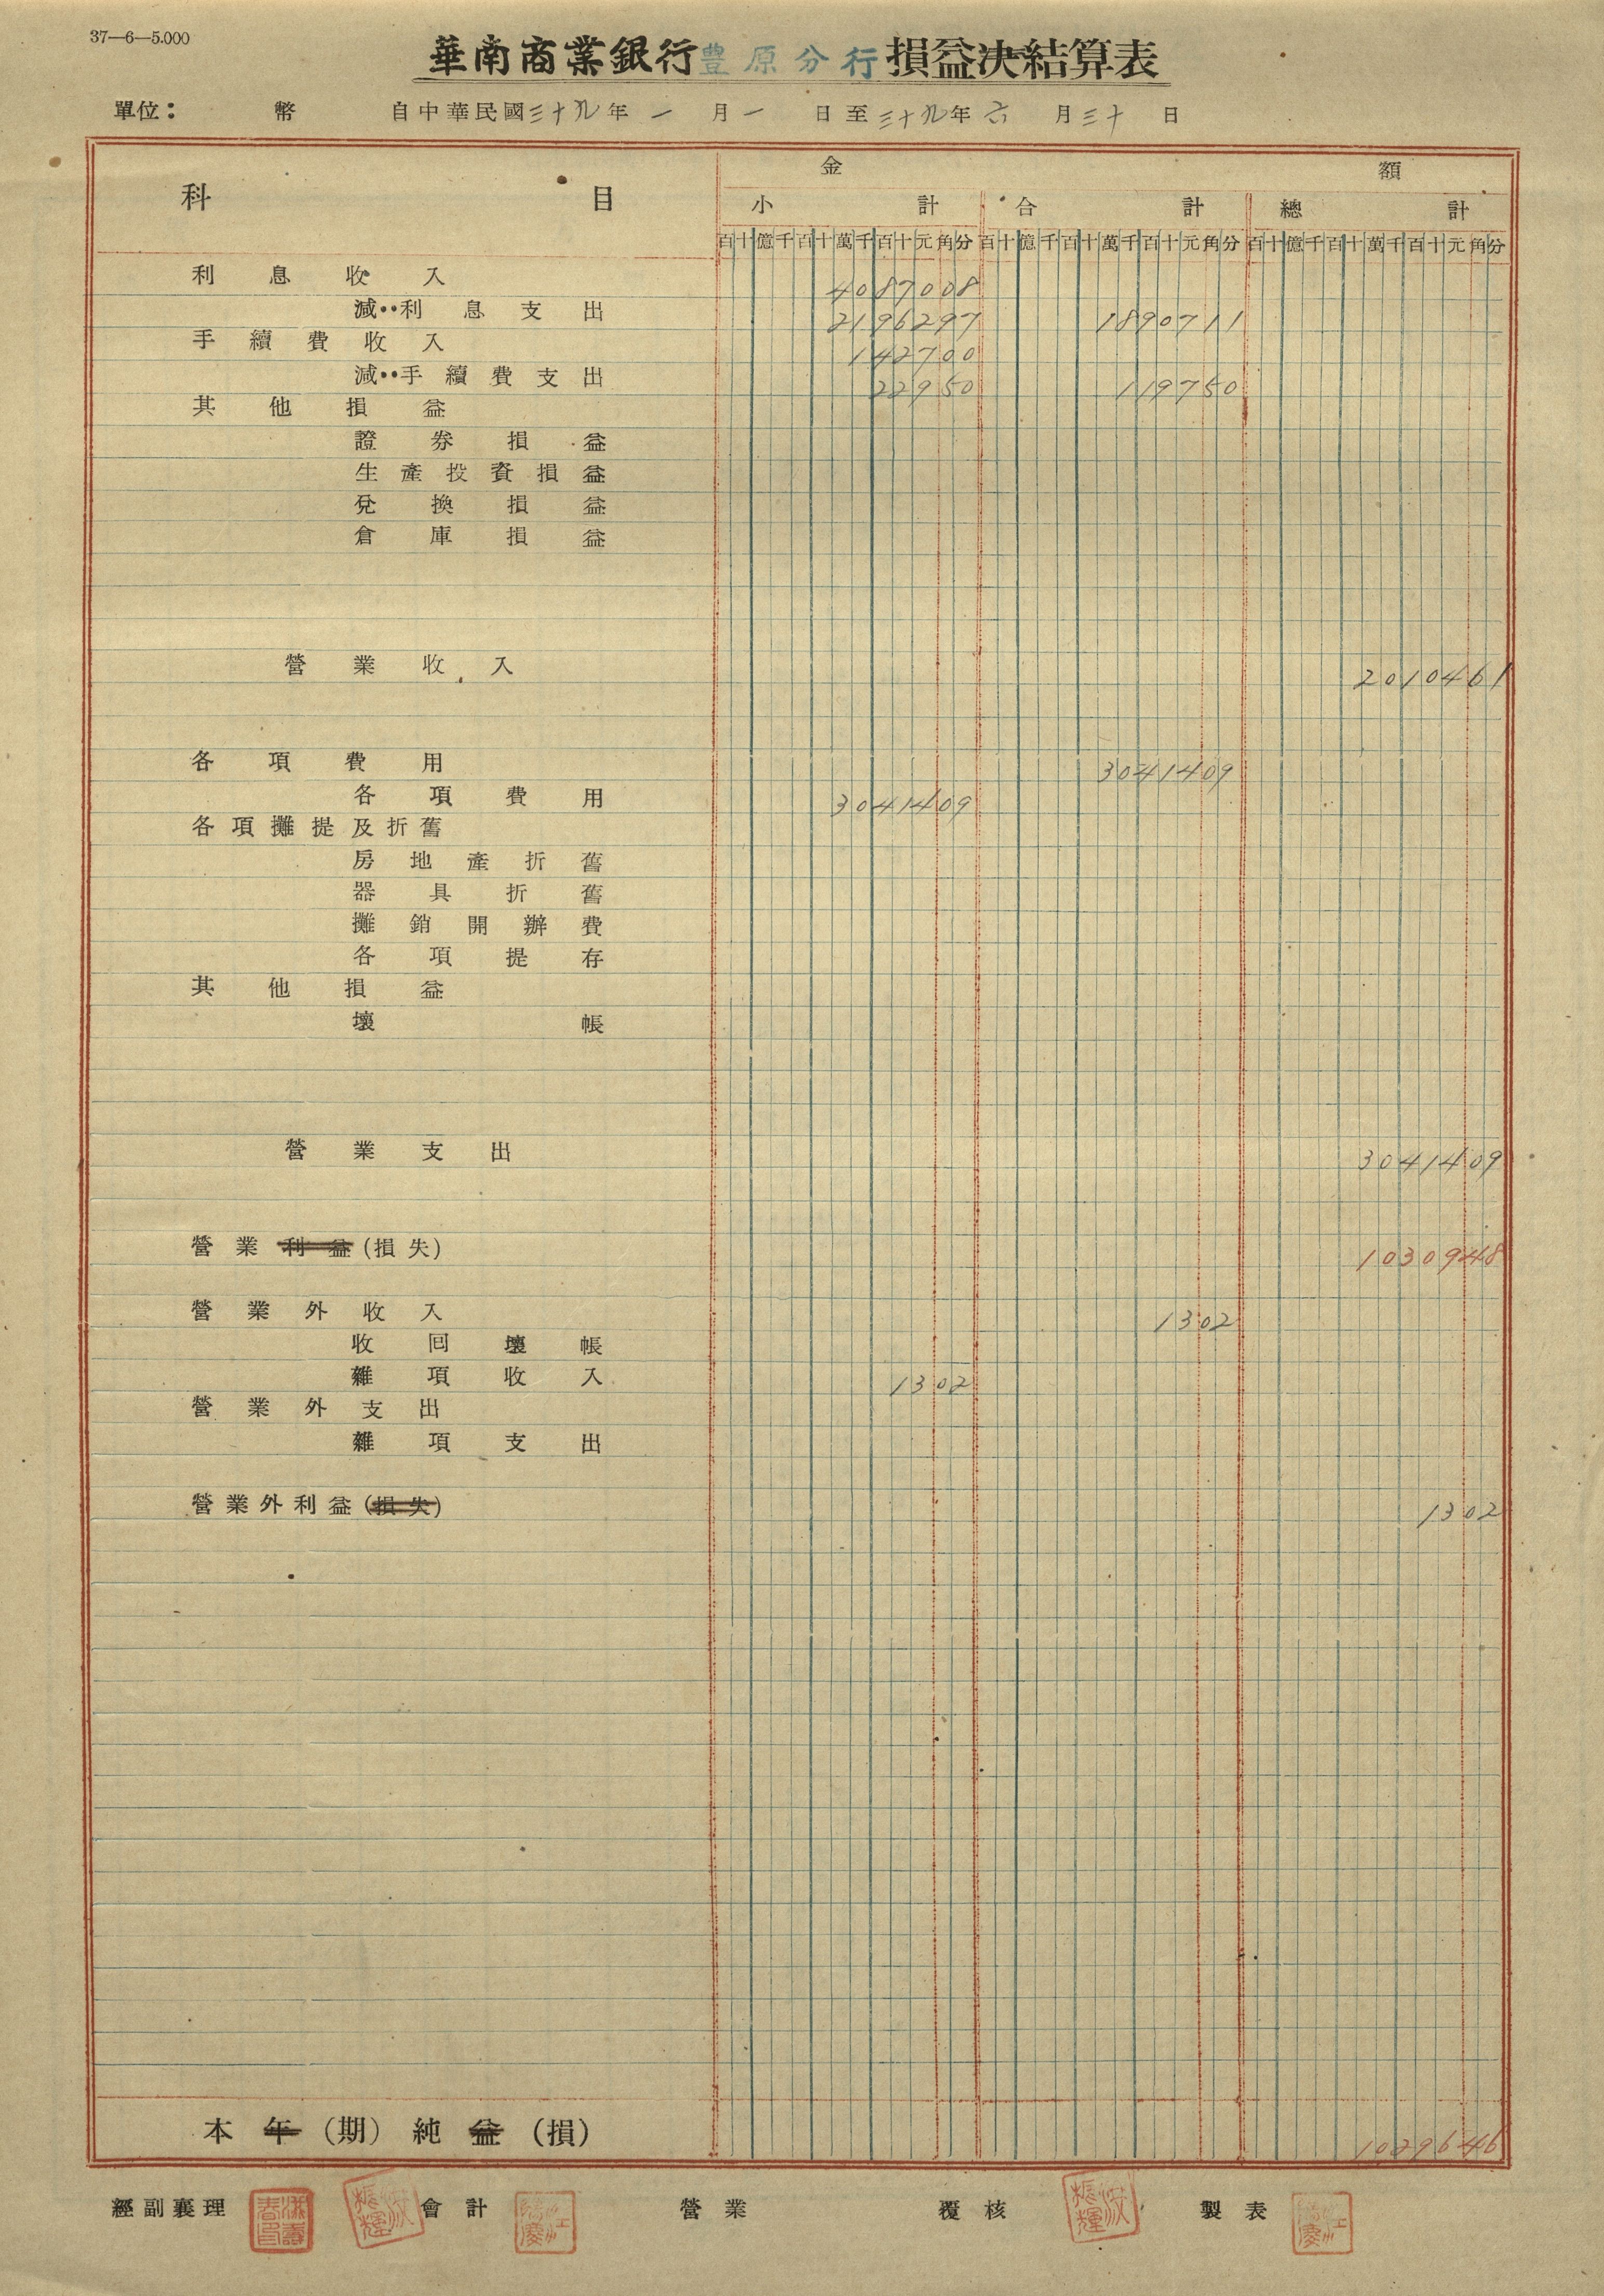 37—6—5.000
華南商業銀行豊原分行損益決結算表
單位： 幣 自中華民國三十九年一月一日至三十九年六月三十日
科目 金額
小計 合計 總計
百十億千百十萬千百十元角分 百十億千百十萬千百十元角分 百十億千百十萬千百十元角分
利息收入 4087008
減：利息支出 2196297 1890711
手續費收入 142700
減：手續費支出 22950 119750
其他損益
證券損益
生產投資損益
兌換損益
倉庫損益
營業收入 2010461
各項費用 3041409
各項費用 3041409
各項攤提及折舊
房地產折舊
器具折舊
攤銷開辦費
各項提存
其他損益
壞帳
營業支出 3041409
營業利益(損失) 1030948
營業外收入 1302
收回壞帳
雜項收入 1302
營業外支出
雜項支出
營業外利益(損失) 1302
本年(期)純益(損) 1029646
經副襄理 會計 營業 覆核 製表